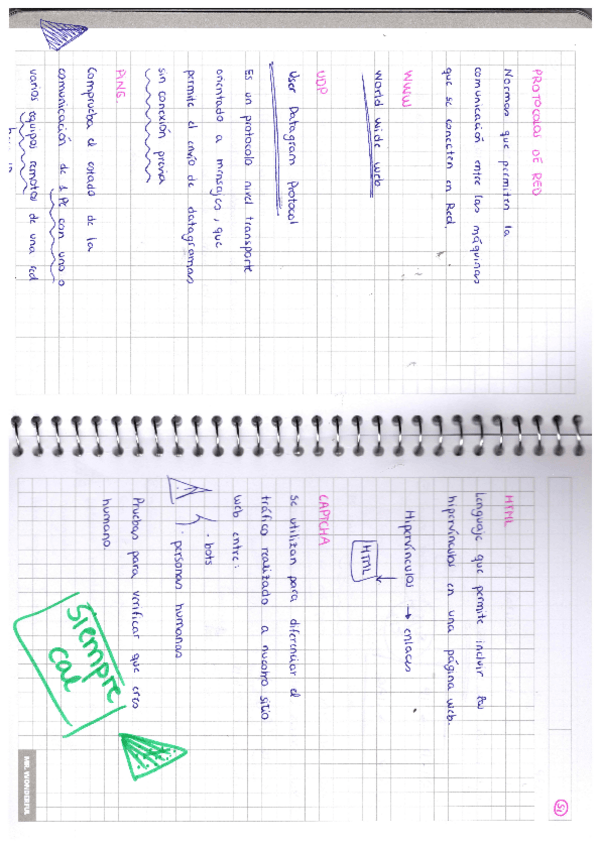 PROTOCOLOS DE RED
Normas que permiten la
comunicación entre las máquinas
que se conecten en Red.
WWW
World Wide Web
UDP
User Datagram Protocol
Es un protocolo nivel transporte
orientado a mensajes, que
permite el envío de datagramas
sin conexión previa
PING
Comprueba el estado de la
comunicación de 1 PC con uno o
varios equipos remotos de una red
51
HTML
Lenguaje que permite incluir los
hipervínculos en una página web.
Hipervínculos → enlaces
HTML
CAPTCHA
se utilizan para diferenciar el
tráfico realizado a nuestro sitio
web entre:
· bots
· personas humanas
!
Pruebas para verificar que eres
humano.
Siempre
cae
MR. WONDERFUL